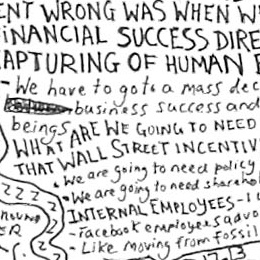 ENT WRONG WAS WHEN W
FINANCIAL SUCCESS DIRE
APTURING OF HUMAN
- We have to gota mass dec
business success and
beings
WHAT ARE WE GOING TO NEED
THAT WALL STREET INCENTIV
• We are going to need policy
• We are going to need shareho
INTERNAL EMPLOYEES-I
- Facebook employees advo
- Like moving from fossil
Z Z Z Z
ER
17-13